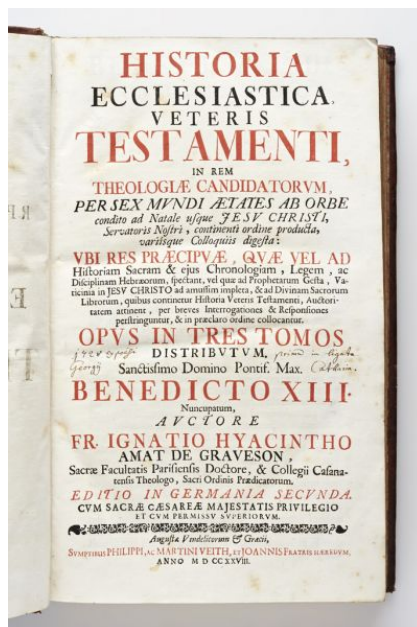 HISTORIA
ECCLESIASTICA,
VETERIS
TESTAMENTI,
IN REM
THEOLOGIÆ CANDIDATORVM,
PER SEX MVNDI ÆTATES AB ORBE
condito ad Natale usque JESV CHRISTI,
Servatoris Nostri, continenti ordine producta,
variisque Colloquiis digesta:
VBI RES PRÆCIPVÆ, QVÆ VEL AD
Historiam Sacram & ejus Chronologiam, Legem, ac
Disciplinam Hebræorum, spectant, vel quæ ad Prophetarum Gesta, Va-
ticinia in JESV CHRISTO ad amussim impleta, & ad Divinam Sacrorum
Librorum, quibus continetur Historia Veteris Testamenti, Auctori-
tatem attinent, per breves Interrogationes & Responsiones
perstringuntur, & in præclaro ordine collocantur.
OPVS IN TRES TOMOS
DISTRIBVTVM,
Sanctissimo Domino Pontif. Max.
BENEDICTO XIII.
Nuncupatum,
AVCTORE
FR. IGNATIO HYACINTHO
AMAT DE GRAVESON,
Sacræ Facultatis Parisiensis Doctore, & Collegii Casana-
tensis Theologo, Sacri Ordinis Prædicatorum.
EDITIO IN GERMANIA SECVNDA.
CVM SACRÆ CÆSAREÆ MAJESTATIS PRIVILEGIO
ET CVM PERMISSV SVPERIORVM.
Augustæ Vindelicorum & Græcii,
SVMPTIBUS PHILIPPI, AC MARTINI VEITH, ET JOANNIS FRATRIS HÆREDVM,
ANNO M D CCXXVIII.